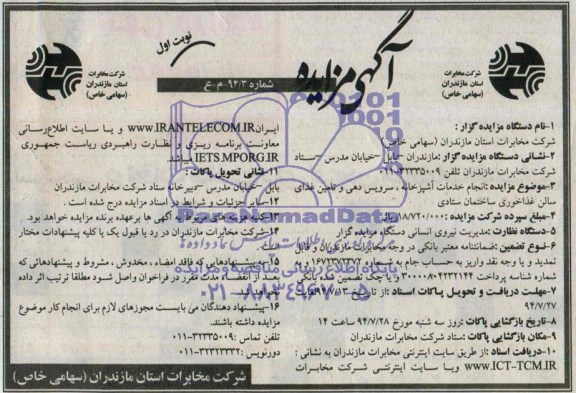 نوبت اول
آگهی مزایده
شماره ۹۴/۳-م-ع
شرکت مخابرات
استان مازندران
(سهامی خاص)
شرکت مخابرات
استان مازندران
(سهامی خاص)
۱-نام دستگاه مزایده گزار :
شرکت مخابرات استان مازندران (سهامی خاص)
۲-نشانی دستگاه مزایده گزار: مازندران –بابل –خیابان مدرس –ستاد
شرکت مخابرات مازندران تلفن ۳۲۳۳۵۰۰۹-۰۱۱
۳-موضوع مزایده :انجام خدمات آشپزخانه ، سرویس دهی و تامین غذای
سالن غذاخوری ساختمان ستادی
۴-مبلغ سپرده شرکت مزایده : ریال
۵-دستگاه نظارت :مدیریت نیروی انسانی دستگاه مزایده گزار
۶-نوع تضمین :ضمانتنامه معتبر بانکی در وجه مخابرات مازندران و قابل
تمدید و یا وجه نقد واریز به حساب جام به شماره
شماره شناسه پرداخت و یا چک تضمین شده بانکی
۷-مهلت دریافت و تحویل پاکات اسناد :از تاریخ
۹۴/۷/۲۷
۸-تاریخ بازگشایی پاکات :روز سه شنبه مورخ ۹۴/۷/۲۸ ساعت ۱۴
۹-مکان بازگشایی پاکات :ستاد شرکت مخابرات استان مازندران
۱۰-دریافت اسناد :از طریق سایت اینترنتی مخابرات مازندران به نشانی :
WWW.ICT-TCM.IR ویا سایت اینترنتی شرکت مخابرات
ایران WWW.IRANTELECOM.IR و یا سایت اطلاع‌رسانی
معاونت برنامه ریزی و نظارت راهبردی ریاست جمهوری
IETS.MPORG.IR میباشد.
۱۱-نشانی تحویل پاکات :
بابل –خیابان مدرس –دبیرخانه ستاد شرکت مخابرات مازندران
۱۲-سایر جزئیات و شرایط در اسناد مزایده درج شده است .
۱۳-کلیه هزینه های مربوط به آگهی ها برعهده برنده مزایده خواهد بود.
۱۴-شرکت مخابرات مازندران در رد یا قبول یک یا کلیه پیشنهادات مختار
است
۱۵-به پیشنهادهایی که فاقد امضاء ، مخدوش ، مشروط و پیشنهادهائی که
بعد از انقضاء مدت مقرر در فراخوان واصل شود مطلقا ترتیب اثر داده
نخواهد شد.
۱۶-پیشنهاد دهندگان می بایست مجوزهای لازم برای انجام کار موضوع
مزایده داشته باشند.
تلفن تماس :۳۲۳۳۵۰۰۹-۰۱۱
دورنویس :۳۲۳۲۳۳۳۲-۰۱۱
شرکت مخابرات استان مازندران (سهامی خاص)
ParsNamadData
پایگاه اطلاع رسانی مناقصه و مزایده
۰۲۱-۸۸۳۴۹۶۷۰-۵